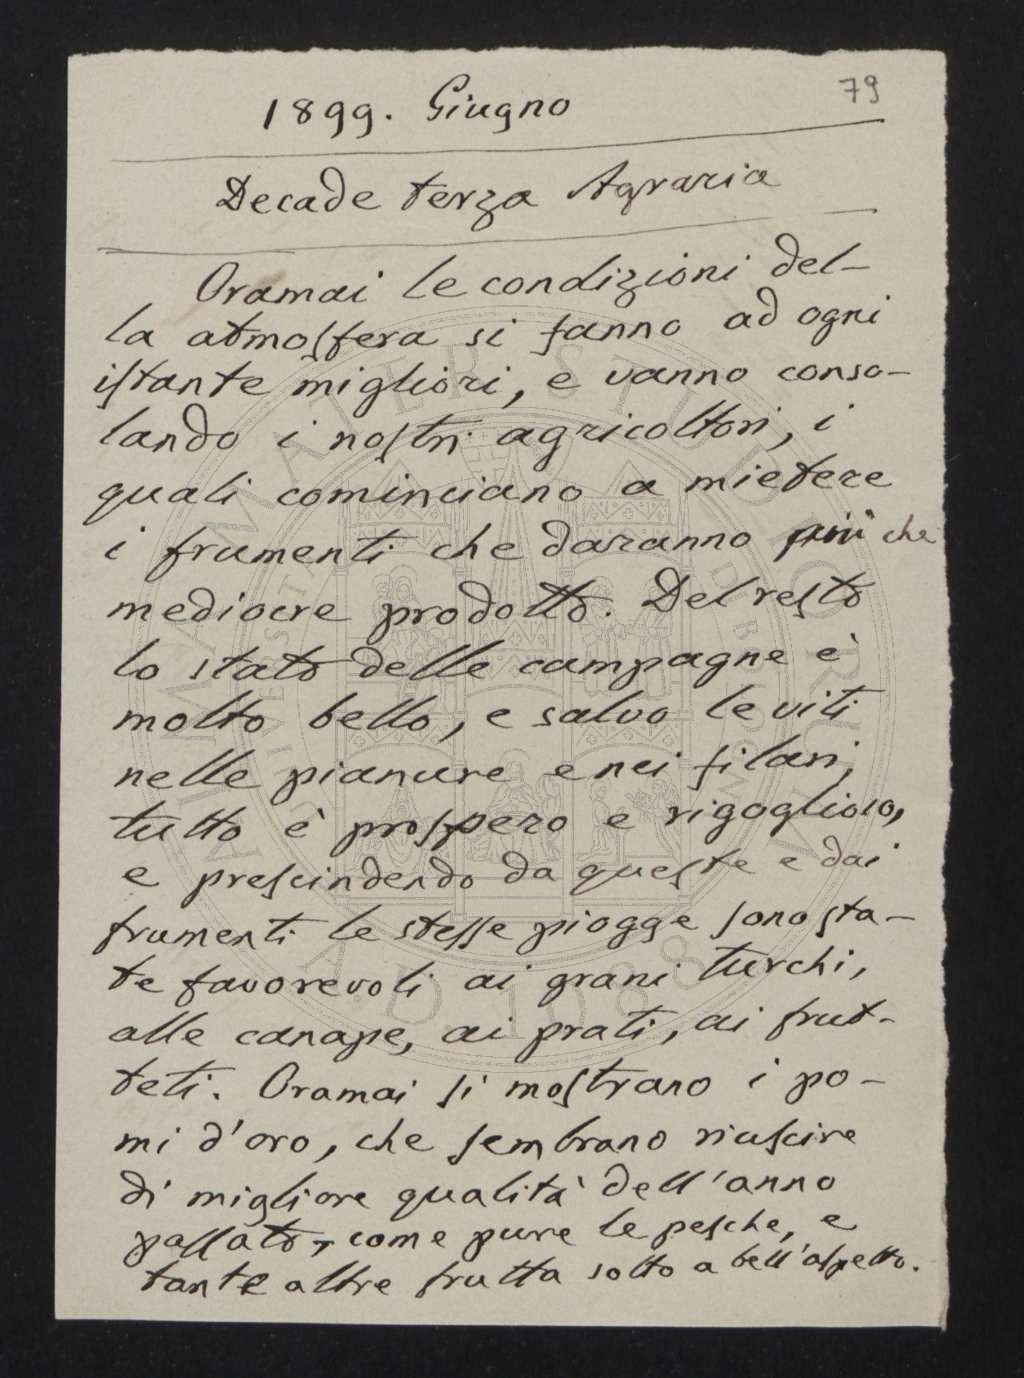 79
1899. Giugno
Decade terza Agraria
Oramai le condizioni del-
la atmosfera si fanno ad ogni
istante migliori, e vanno conso-
lando i nostri agricoltori, i
quali cominciano a mietere
i frumenti che daranno più che
mediocre prodotto. Del resto
lo stato delle campagne è
molto bello, e salvo le viti
nelle pianure e nei filari,
tutto è prospero e rigoglioso,
e prescindendo da queste e dai
frumenti le stesse piogge sono sta-
te favorevoli ai grani turchi,
alle canape, ai prati, ai frut-
teti. Oramai si mostrano i po-
mi d'oro, che sembrano riuscire
di migliore qualità dell'anno
passato, come pure le pesche, e
tante altre frutta sotto a bell'aspetto.
ALMA MATER STUDIORUM
A.D. 1088